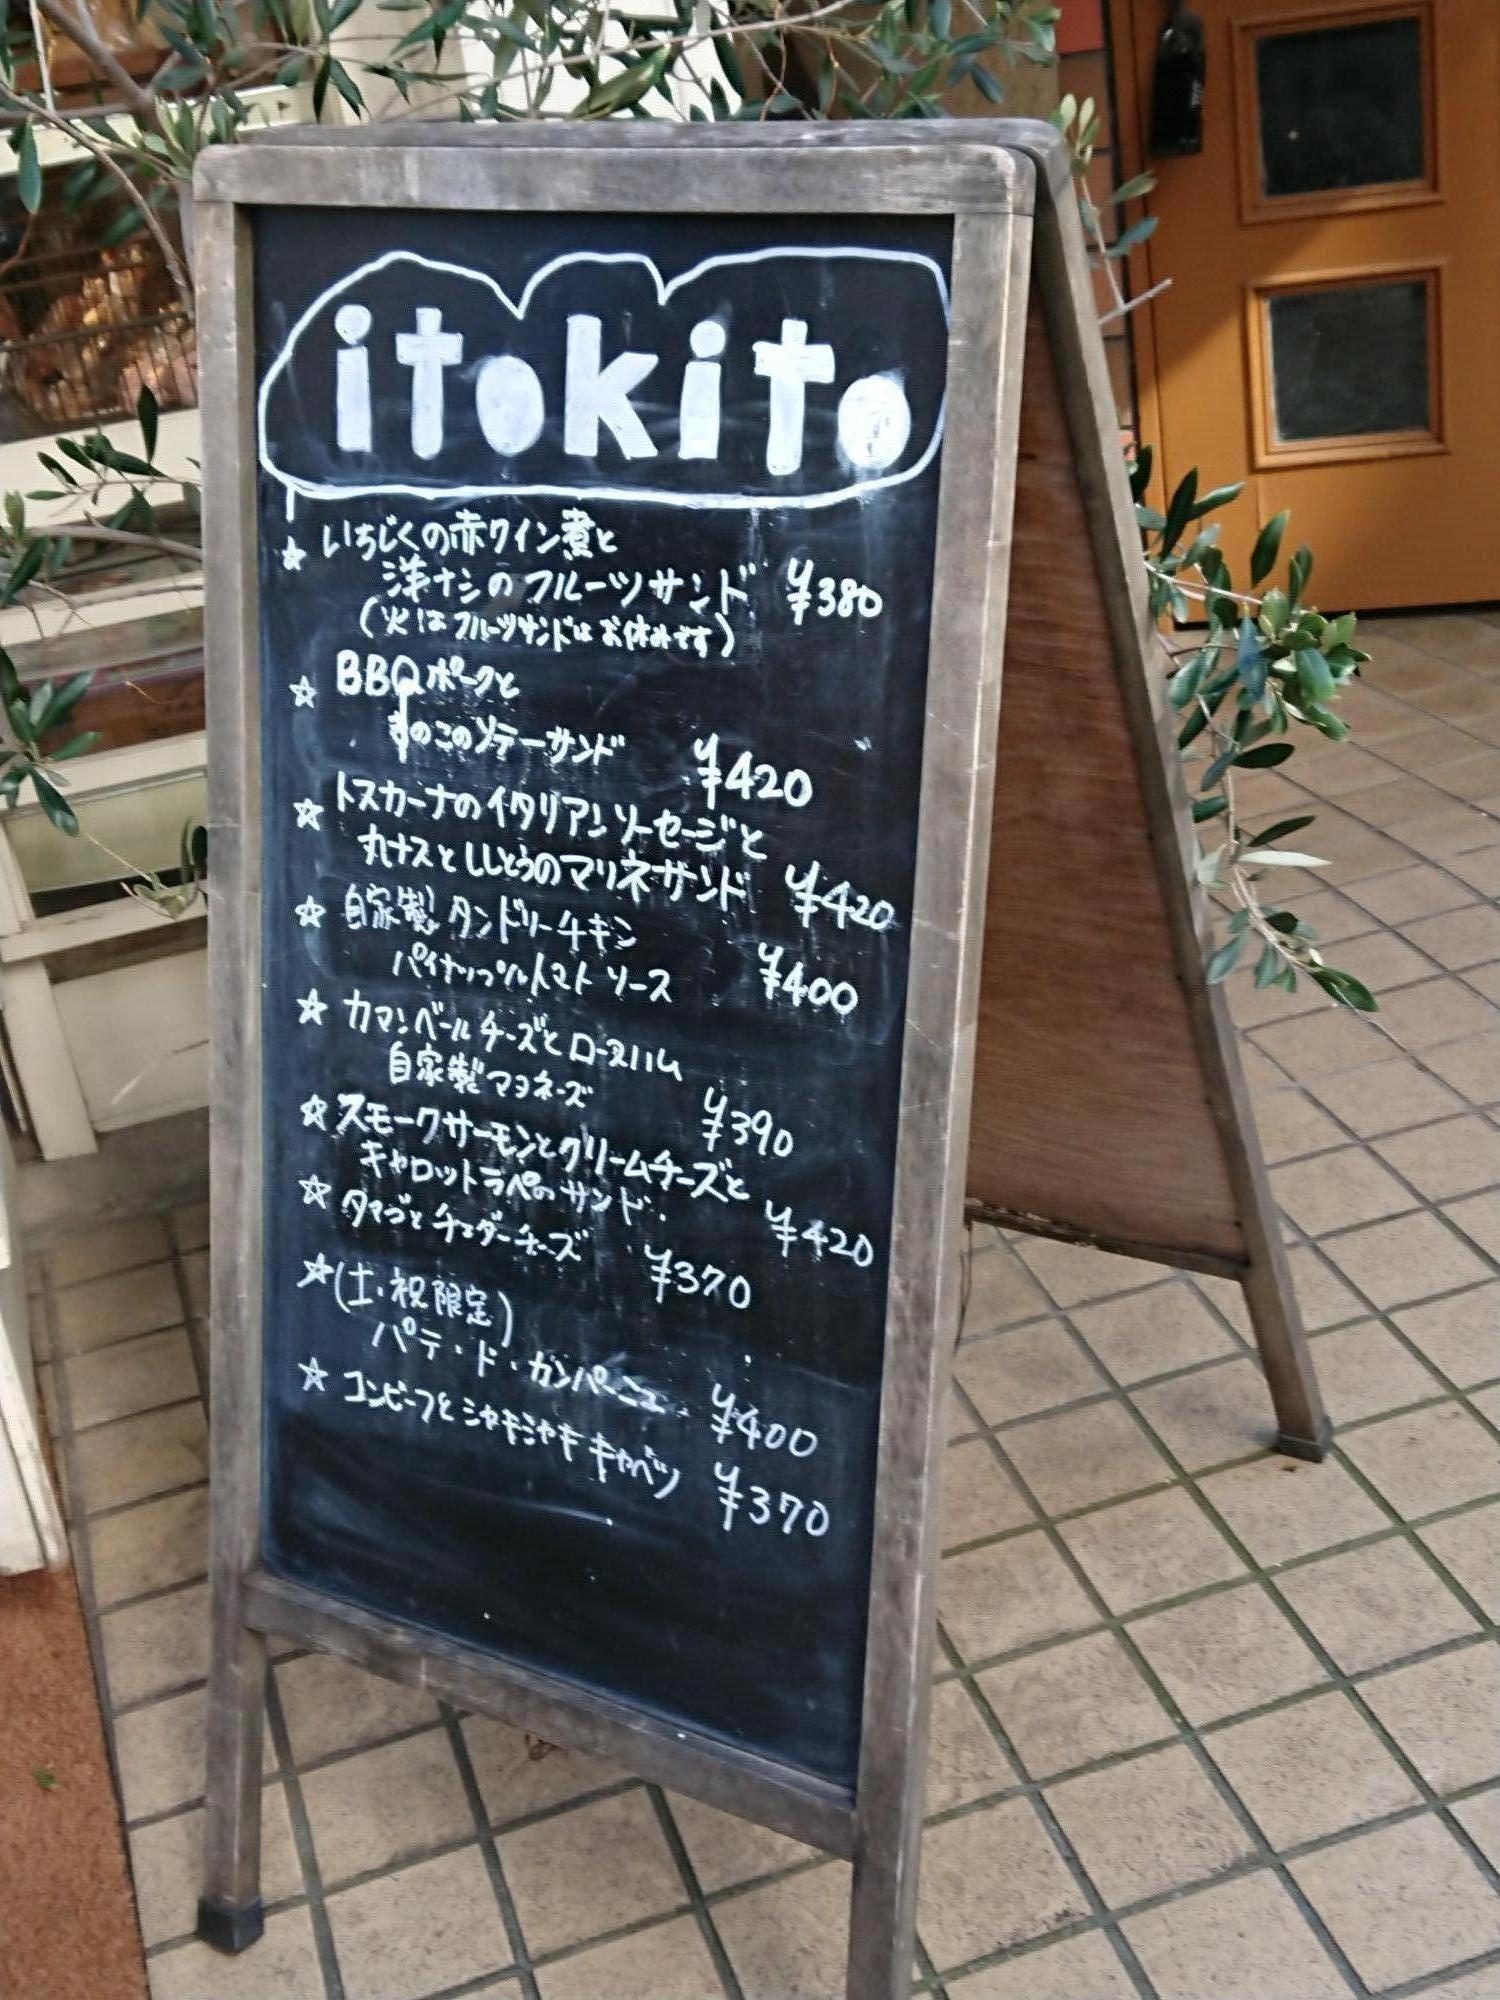 itokito
☆ いちじくの赤ワイン煮と
洋ナシのフルーツサンド ¥380
(火はフルーツサンドはお休みです)
☆ BBQポークと
きのこのソテーサンド ¥420
☆ トスカーナのイタリアンソーセージと
丸ナスとししとうのマリネサンド ¥420
☆ 自家製タンドリーチキン
パイナップルトマトソース ¥400
☆ カマンベールチーズとロースハム
自家製マヨネーズ ¥390
☆ スモークサーモンとクリームチーズと
キャロットラペのサンド. ¥420
☆ タマゴとチェダーチーズ ¥370
☆ (土・祝限定)
パテ・ド・カンパーニュ ¥400
☆ コンビーフとシャキシャキキャベツ ¥370